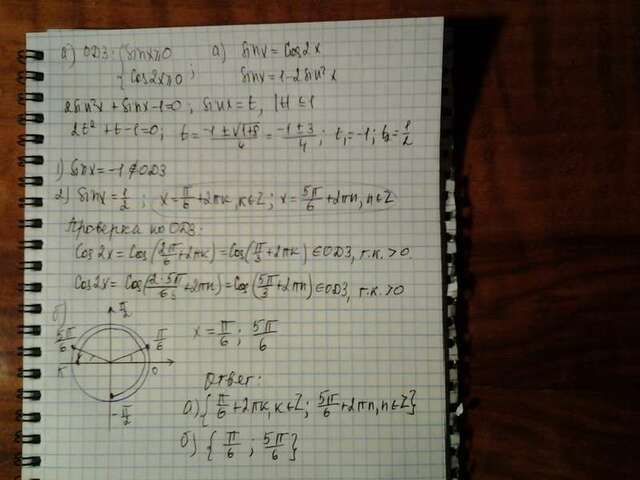 а) ОДЗ: { Sinx≥0
{ Cos2x≥0 ;
а) Sinx = Cos2x
Sinx = 1-2Sin²x
2Sin²x + Sinx-1=0; Sinx=t, |t|≤1
2t²+t-1=0; t = (-1±√(1+8))/4 = (-1±3)/4; t₁=-1; t₂=1/2
1) Sinx=-1 ∉ОДЗ
2) Sinx=1/2; x=π/6+2πк, к∈Z; x=5π/6+2πn, n∈Z
Проверка по ОДЗ:
Cos2x = Cos(2π/6+2πк) = Cos(π/3+2πк) ∈ОДЗ, т.к. >0.
Cos2x = Cos(2·5π/6₃+2πn) = Cos(5π/3+2πn) ∈ОДЗ, т.к. >0
б)
π/2
5π/6
π/6
π
0
-π/2
x = π/6; 5π/6
Ответ:
а) {π/6+2πк, к∈Z; 5π/6+2πn, n∈Z}
б) {π/6; 5π/6}